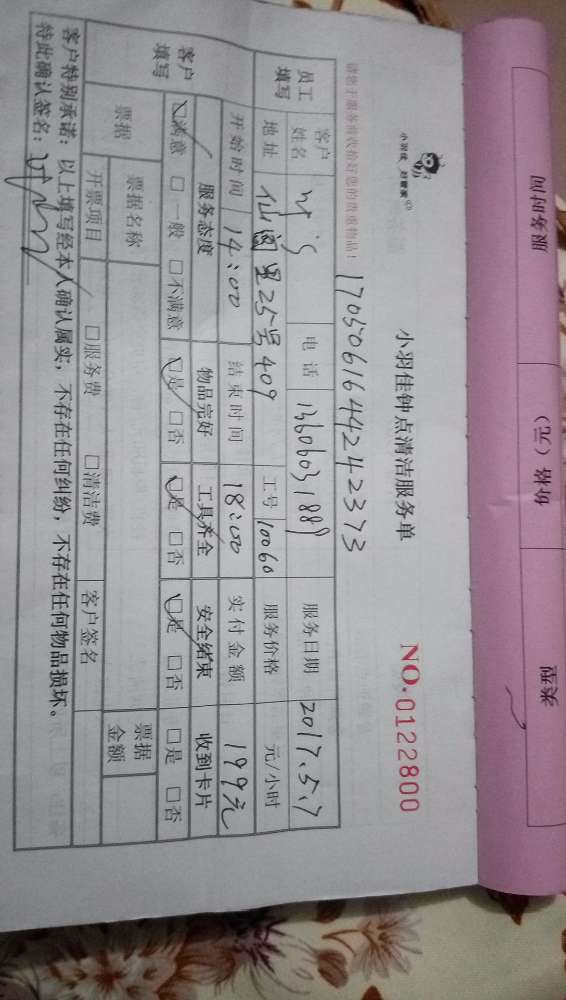 服务时间
价格（元）
类型
小羽佳
小羽佳钟点清洁服务单
NO.0122800
请您于服务前收拾好您的贵重物品！
1705061644242373
员工填写
客户姓名
电话
13606031889
服务日期
2017.5.7
地址
仙阁里25号409
工号
10060
服务价格
元/小时
开始时间
14:00
结束时间
18:00
实付金额
199元
客户填写
服务态度
物品完好
工具齐全
安全结束
收到卡片
□满意 □一般 □不满意
□是 □否
□是 □否
□是 □否
□是 □否
票据
票据名称
票据金额
开票项目
□服务费
□清洁费
客户签名
客户特别承诺：以上填写经本人确认属实，不存在任何纠纷，不存在任何物品损坏。
特此确认签名：